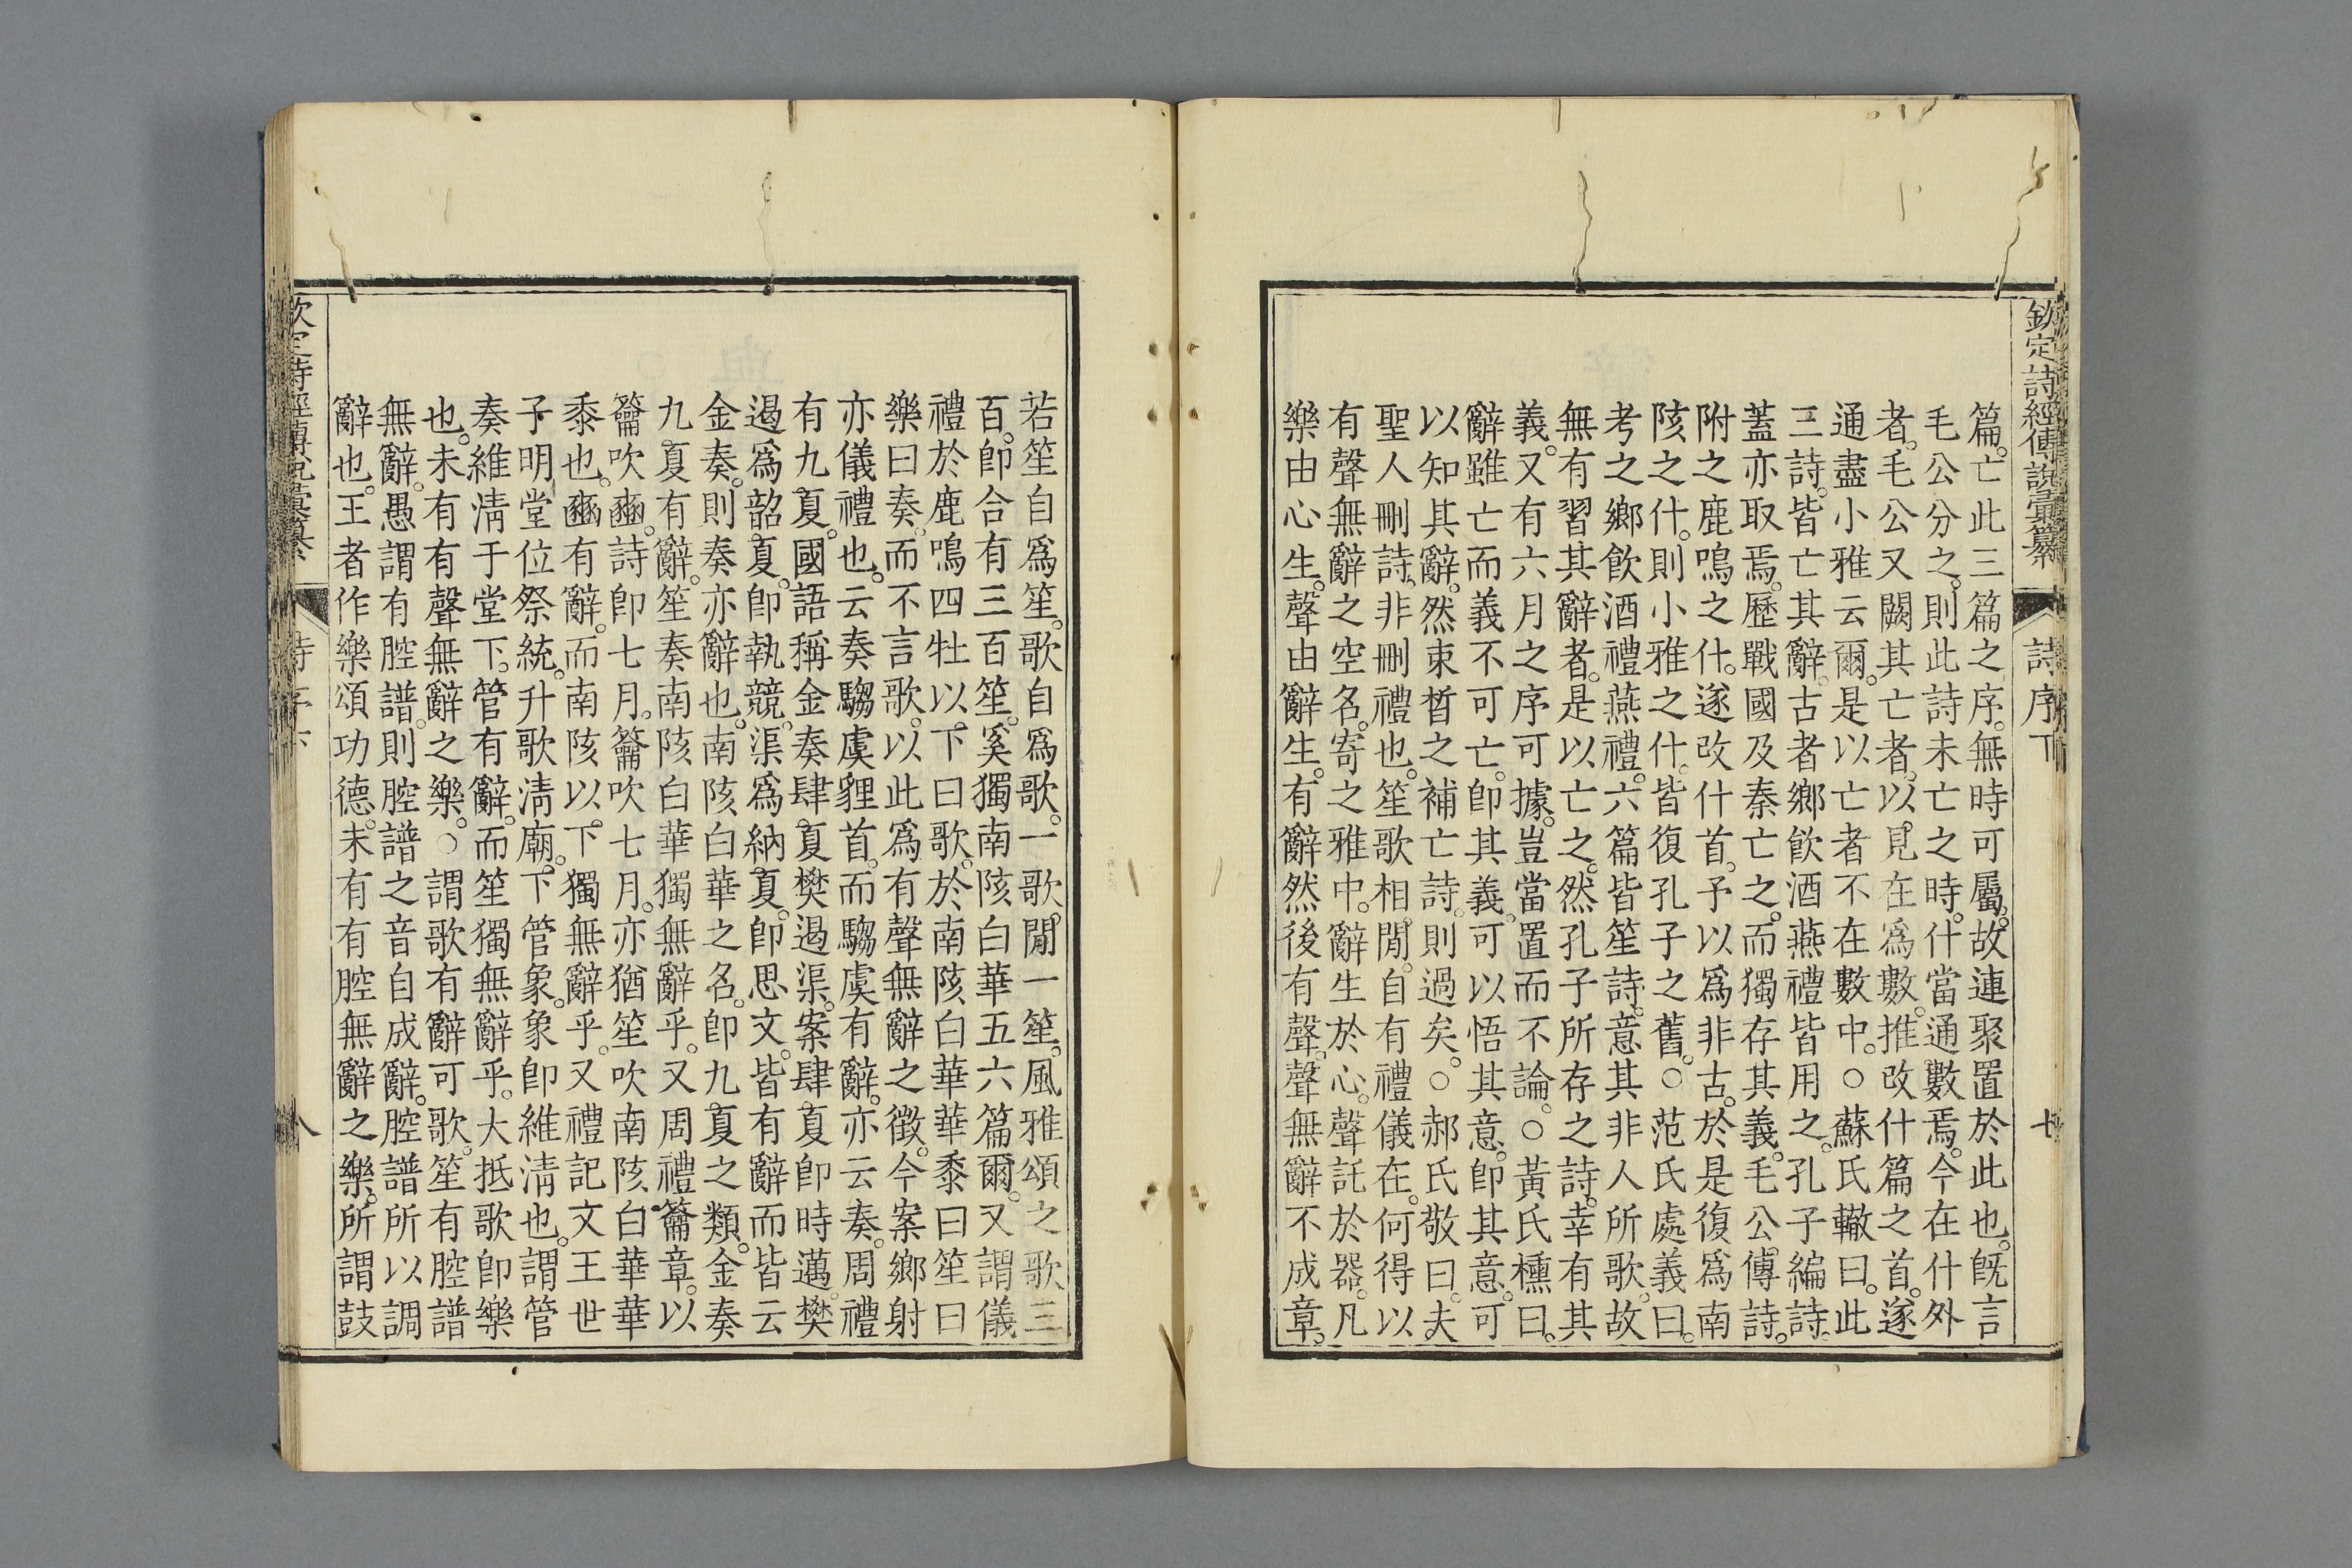 欽定詩經傳說彙纂
詩序下
七
篇亡此三篇之序無時可屬故連聚置於此也旣言
毛公分之則此詩未亡之時什當通數焉今在什外
者毛公又闕其亡者以見在爲數推改什篇之首遂
通盡小雅云爾是以亡者不在數中○蘇氏轍曰此
三詩皆亡其辭古者鄉飮酒燕禮皆用之孔子編詩
蓋亦取焉歷戰國及秦亡之而獨存其義毛公傳詩
附之鹿鳴之什遂改什首予以爲非古於是復爲南
陔之什則小雅之什皆復孔子之舊○范氏處義曰
考之鄉飮酒禮燕禮六篇皆笙詩意其非人所歌故
無有習其辭者是以亡之然孔子所存之詩幸有其
義又有六月之序可據豈當置而不論○黃氏櫄曰
辭雖亡而義不可亡卽其義可以悟其意卽其意可
以知其辭然束晳之補亡詩則過矣○郝氏敬曰夫
聖人刪詩非刪禮也笙歌相閒自有禮儀在何得以
有聲無辭之空名寄之雅中辭生於心聲託於器凡
樂由心生聲由辭生有辭然後有聲聲無辭不成章
若笙自爲笙歌自爲歌一歌閒一笙風雅頌之歌三
百卽合有三百笙奚獨南陔白華五六篇爾又謂儀
禮於鹿鳴四牡以下曰歌於南陔白華華黍曰笙曰
樂曰奏而不言歌以此爲有聲無辭之徵今案鄉射
亦儀禮也云奏騶虞貍首而騶虞有辭亦云奏周禮
有九夏國語稱金奏肆夏樊遏渠案肆夏卽時邁樊
遏爲韶夏卽執競渠爲納夏卽思文皆有辭而皆云
金奏則奏亦辭也南陔白華之名卽九夏之類金奏
九夏有辭笙奏南陔白華獨無辭乎又周禮籥章以
籥吹豳詩卽七月籥吹七月亦猶笙吹南陔白華華
黍也豳有辭而南陔以下獨無辭乎又禮記文王世
子明堂位祭統升歌淸廟下管象象卽維淸也謂管
奏維淸于堂下管有辭而笙獨無辭乎大抵歌卽樂
也未有有聲無辭之樂○謂歌有辭可歌笙有腔譜
無辭愚謂有腔譜則腔譜之音自成辭腔譜所以調
辭也王者作樂頌功德未有有腔無辭之樂所謂鼓
欽定詩經傳說彙纂
詩序下
八